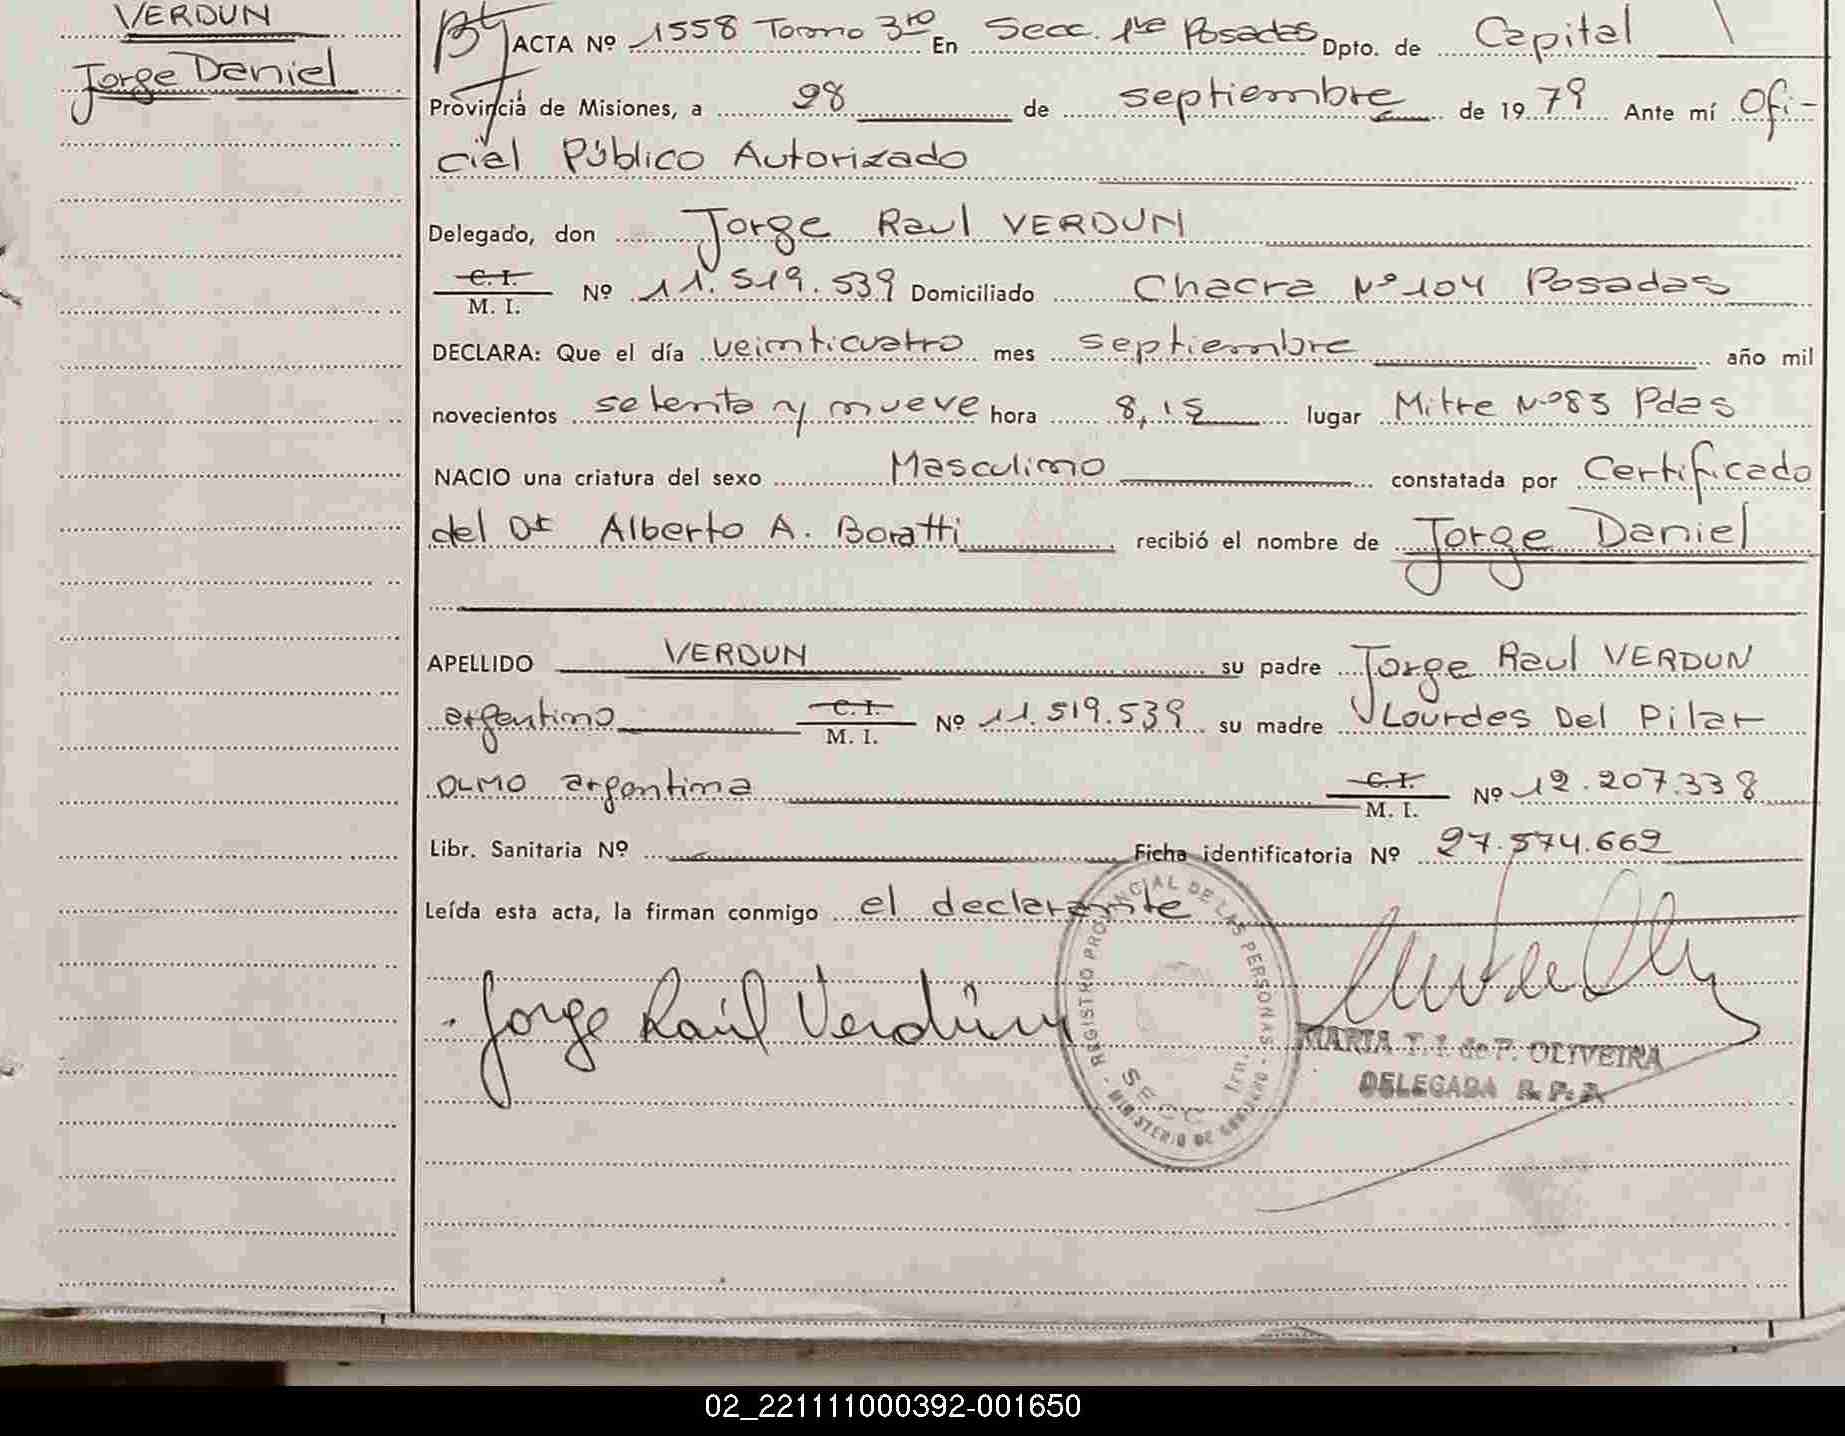 VERDUN
Jorge Daniel
ACTA Nº 1558 Tomo 3ro En Secc. 1ra Posadas Dpto. de Capital
Provincia de Misiones, a 28 de septiembre de 1979 Ante mí Ofi-
cial Público Autorizado
Delegado, don Jorge Raul VERDUN
C. I.
M. I. Nº 11.519.539 Domiciliado Chacra Nº 104 Posadas
DECLARA: Que el día veinticuatro mes septiembre año mil
novecientos setenta y nueve hora 8,15 lugar Mitre Nº 83 Pdas
NACIO una criatura del sexo Masculino constatada por Certificado
del Dr Alberto A. Boratti recibió el nombre de Jorge Daniel
APELLIDO VERDUN su padre Jorge Raul VERDUN
argentino C. I. M. I. Nº 11.519.539 su madre Lourdes Del Pilar
OLMO argentina C. I. M. I. Nº 12.207.338
Libr. Sanitaria Nº Ficha identificatoria Nº 27.574.662
Leída esta acta, la firman conmigo el declarante
Jorge Raúl Verdún
REGISTRO PROVINCIAL DE LAS PERSONAS - MINISTERIO DE GOBIERNO -
SECC. 1ra.
MARIA T. I. de P. OLIVEIRA
DELEGADA R. P. P.
02_221111000392-001650